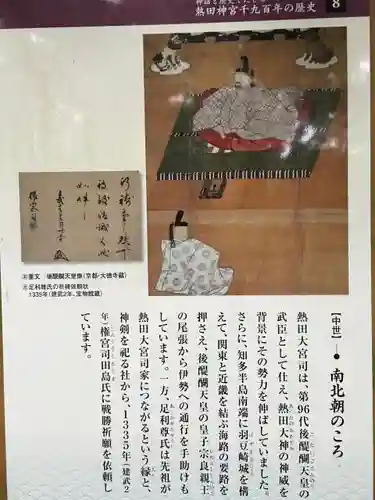 熱田神宮千九百年の歴史
8
重文 後醍醐天皇像(京都・大徳寺蔵)
足利尊氏の祈祷依頼状
1335年(建武2年、宝物館蔵)
【中世】
南北朝のころ
熱田大宮司は、第96代後醍醐天皇の
武臣として仕え、熱田大神の神威を
背景にその勢力を伸ばしていました。
さらに、知多半島南端に羽豆崎城を構
えて、関東と近畿を結ぶ海路の要路を
押さえ、後醍醐天皇の皇子宗良親王
の尾張から伊勢への通行を手助けも
しています。一方、足利尊氏は先祖が
熱田大宮司家につながるという縁と、
神剣を祀る社から、1335年(建武2
年)権宮司田島氏に戦勝祈願を依頼し
ています。